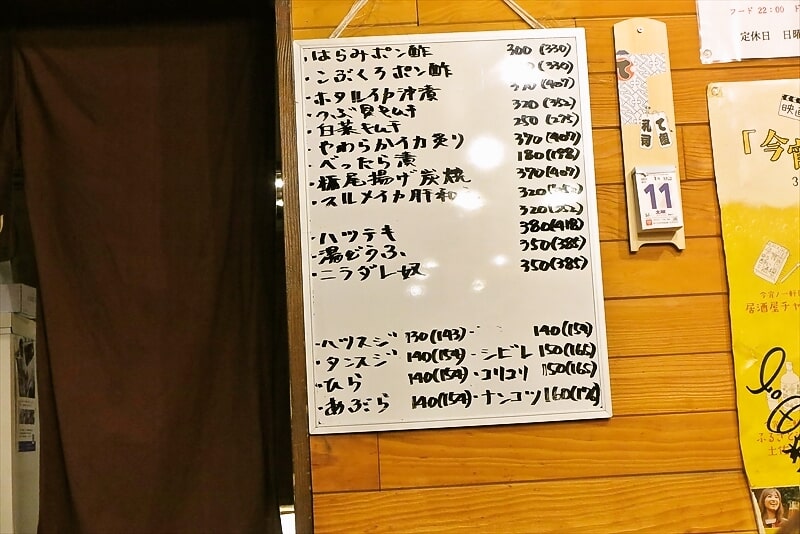 ・はらみポン酢 300(330)
・こぶくろポン酢 (330)
・ホタルイカ沖漬 370(407)
・つぶ貝キムチ 320(352)
・白菜キムチ 250(275)
・やわらかイカ炙り 370(407)
・べったら漬 180(198)
・栃尾揚げ炭焼 370(407)
・スルメイカ肝和 320
320(352)
・ハツテキ 380(418)
・湯どうふ 350(385)
・ニラダレ奴 350(385)
・ハツスジ 130(143) ・ 140(154)
・タンスジ 140(154) ・シビレ 150(165)
・ひら 140(154) ・コリコリ 150(165)
・あぶら 140(154) ・ナンコツ 160(176)
11
フード 22:00
定休日 日曜
映画
「今宵
3
今宵ノ一軒目
居酒屋チャ
ふるさと
土佐